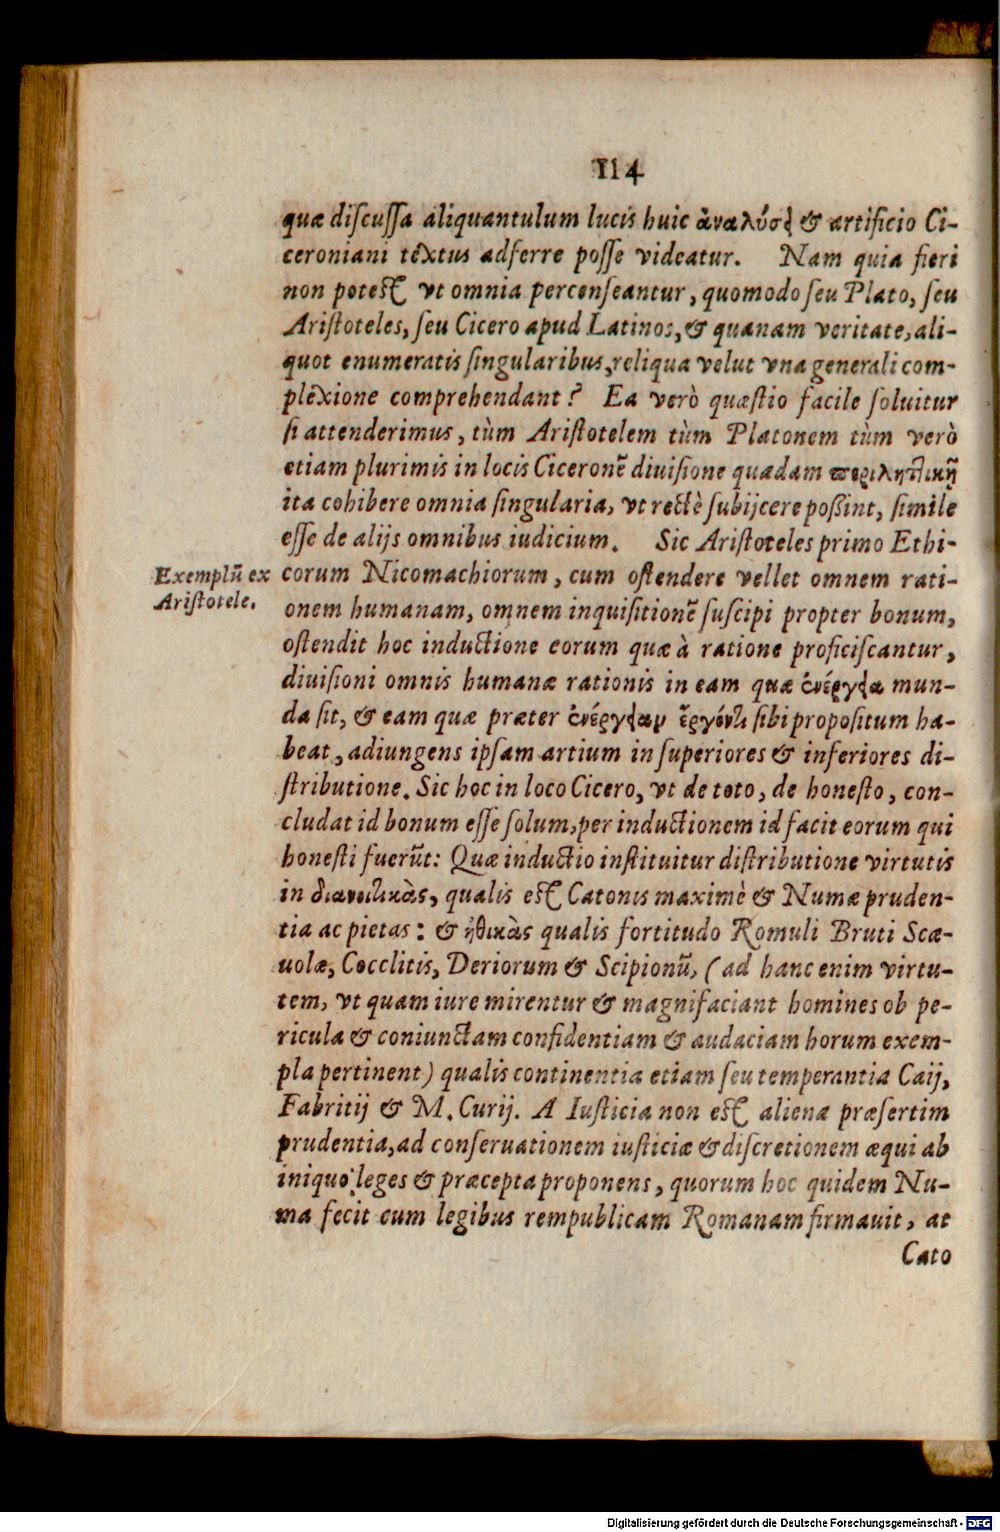 114
quæ discussa aliquantulum lucis huic ἀναλύσει & artificio Ci-
ceroniani textus adferre posse videatur. Nam quia fieri
non potest vt omnia percenseantur, quomodo seu Plato, seu
Aristoteles, seu Cicero apud Latinos, & quanam veritate, ali-
quot enumeratis singularibus, reliqua velut vna generali com-
plexione comprehendant? Ea verò quæstio facile soluitur
si attenderimus, tùm Aristotelem tùm Platonem tùm verò
etiam plurimis in locis Ciceronẽ diuisione quadam περιληπτικῇ
ita cohibere omnia singularia, vt rectè subijcere possint, simile
esse de alijs omnibus iudicium. Sic Aristoteles primo Ethi-
Exemplũ ex
Aristotele.
corum Nicomachiorum, cum ostendere vellet omnem rati-
onem humanam, omnem inquisitionẽ suscipi propter bonum,
ostendit hoc inductione eorum quæ à ratione proficiscantur,
diuisioni omnis humanæ rationis in eam quæ ἐνέργεια mun-
da sit, & eam quæ præter ἐνέργειαν sibi propositum ha-
beat, adiungens ipsam artium in superiores & inferiores di-
stributione. Sic hoc in loco Cicero, vt de toto, de honesto, con-
cludat id bonum esse solum, per inductionem id facit eorum qui
honesti fuerũt: Quæ inductio instituitur distributione virtutis
in διανοιτικὰς, qualis est Catonis maximè & Numæ pruden-
tia ac pietas: & ἠθικὰς qualis fortitudo Romuli Bruti Scæ-
uolæ, Cocclitis, Deriorum & Scipionũ, (ad hanc enim virtu-
tem, vt quam iure mirentur & magnifaciant homines ob pe-
ricula & coniunctam confidentiam & audaciam horum exem-
pla pertinent) qualis continentia etiam seu temperantia Caij,
Fabritij & M. Curij. A Iusticia non est aliena præsertim
prudentia, ad conseruationem iusticiæ & discretionem æqui ab
iniquo leges & præcepta proponens, quorum hoc quidem Nu-
ma fecit cum legibus rempublicam Romanam firmauit, at
Cato
Digitalisierung gefördert durch die Deutsche Forschungsgemeinschaft - DFG